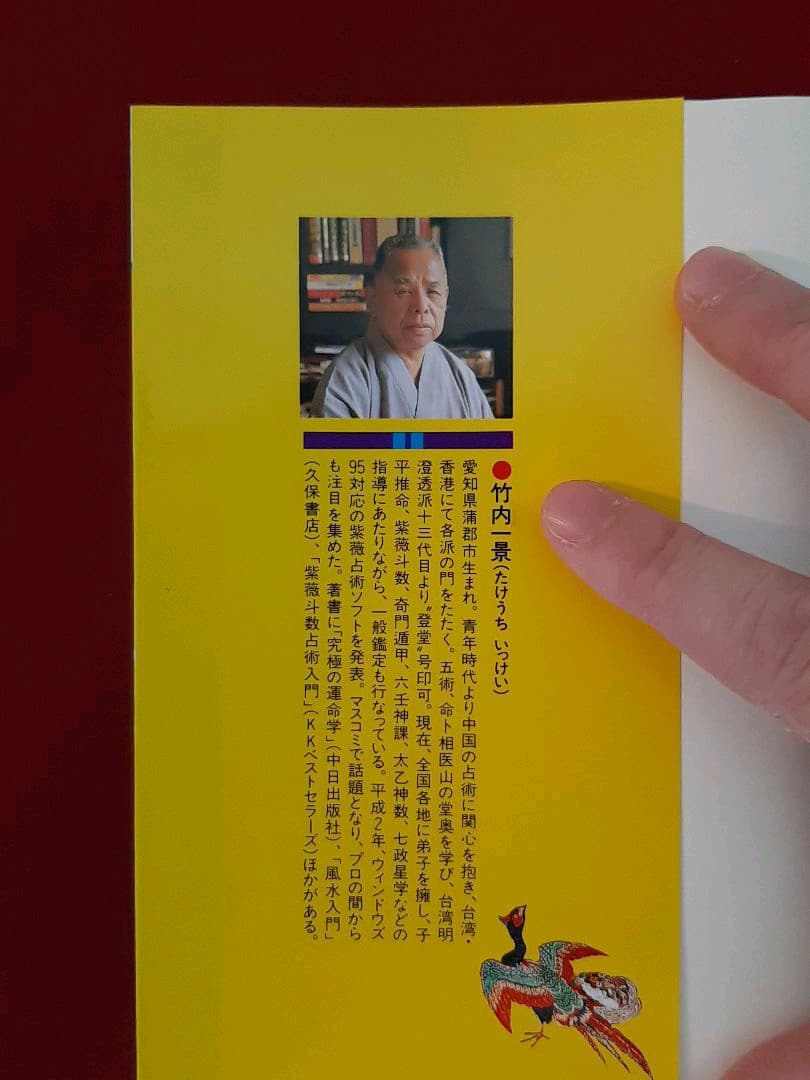 ●竹内一景(たけうち いっけい)
愛知県蒲郡市生まれ。青年時代より中国の占術に関心を抱き、台湾・
香港にて各派の門をたたく。五術、命ト相医山の堂奥を学び、台湾明
澄透派十三代目より〝登堂〟号印可。現在、全国各地に弟子を擁し、子
平推命、紫薇斗数、奇門遁甲、六壬神課、太乙神数、七政星学などの
指導にあたりながら、一般鑑定も行なっている。平成2年、ウィンドウズ
95対応の紫薇占術ソフトを発表。マスコミで話題となり、プロの間から
も注目を集めた。著書に「究極の運命学」(中日出版社)、「風水入門」
(久保書店)、「紫薇斗数占術入門」(KKベストセラーズ)ほかがある。